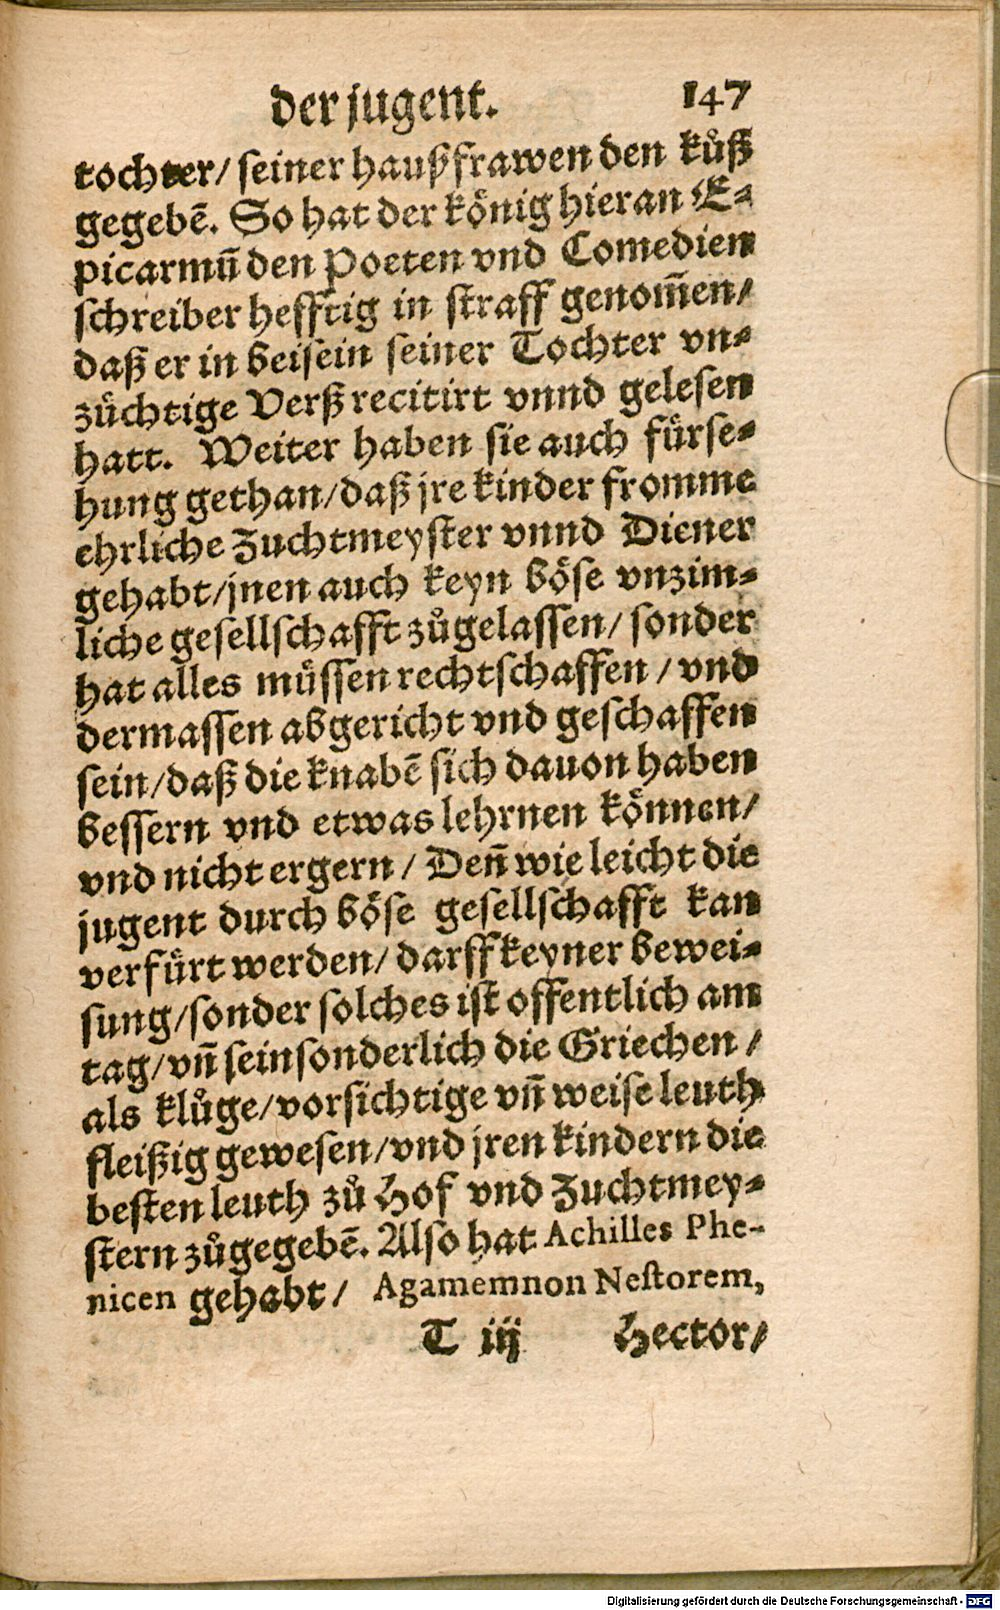 der jugent. 147
tochter/ seiner haußfrawen den kůß
gegebẽ. So hat der könig hieran E-
picarmũ den Poeten vnd Comedien
schreiber hefftig in straff genom̃en/
daß er in beisein seiner Tochter vn-
züchtige Verß recitirt vnnd gelesen
hatt. Weiter haben sie auch fürse-
hung gethan/daß jre kinder fromme
ehrliche Zuchtmeyster vnnd Diener
gehabt/jnen auch keyn böse vnzim-
liche gesellschafft zůgelassen/ sonder
hat alles müssen rechtschaffen / vnd
dermassen abgericht vnd geschaffen
sein/daß die knabẽ sich dauon haben
bessern vnd etwas lehrnen können/
vnd nicht ergern / Deñ wie leicht die
jugent durch böse gesellschafft kan
verfürt werden/ darff keyner bewei-
sung/sonder solches ist offentlich am
tag/vñ sein sonderlich die Griechen /
als klůge/vorsichtige vñ weise leuth
fleißig gewesen/vnd jren kindern die
besten leuth zů Hof vnd Zuchtmey-
stern zůgegebẽ. Also hat Achilles Phe-
nicen gehabt/ Agamemnon Nestorem,
T iij Hector/
Digitalisierung gefördert durch die Deutsche Forschungsgemeinschaft - DFG